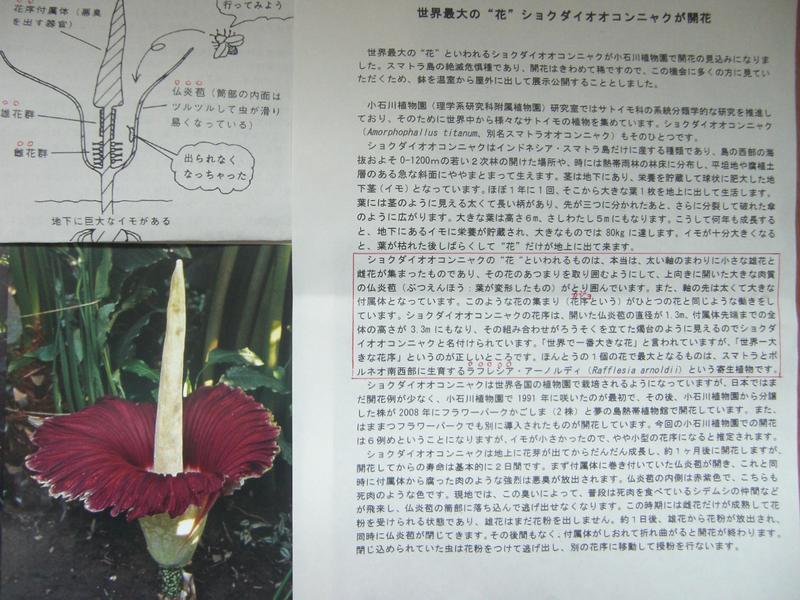 行ってみよう
花序付属体（悪臭
を出す器官）
仏炎苞（筒部の内面は
ツルツルして虫が滑り
易くなっている）
雄花群
雌花群
出られなく
なっちゃった
地下に巨大なイモがある
世界最大の“花”ショクダイオオコンニャクが開花
世界最大の“花”といわれるショクダイオオコンニャクが小石川植物園で開花の見込みになりま
した。スマトラ島の絶滅危惧種であり、開花はきわめて稀ですので、この機会に多くの方に見てい
ただくため、鉢を温室から屋外に出して展示公開することとしました。
小石川植物園（理学系研究科附属植物園）研究室ではサトイモ科の系統分類学的な研究を推進し
ており、そのために世界中から様々なサトイモの植物を集めています。ショクダイオオコンニャク
（Amorphophallus titanum、別名スマトラオオコンニャク）もそのひとつです。
ショクダイオオコンニャクはインドネシア・スマトラ島だけに産する種類であり、島の西部の海
抜およそ0-1200mの若い2次林の開けた場所や、時には熱帯雨林の林床に分布し、平坦地や腐植土
層のある急な斜面にややまとまって生えます。茎は地下にあり、栄養を貯蔵して球状に肥大した地
下茎（イモ）となっています。ほぼ1年に1回、そこから大きな葉1枚を地上に出して生活します。
葉には茎のように見える太くて長い柄があり、先が三つに分かれたあと、さらに分裂して破れた傘
のように広がります。大きな葉は高さ6m、さしわたし5mにもなります。こうして何年も成長する
と、地下にあるイモに栄養が貯蔵され、大きなものでは80kgに達します。イモが十分大きくなる
と、葉が枯れた後しばらくして“花”だけが地上に出て来ます。
ショクダイオオコンニャクの“花”といわれるものは、本当は、太い軸のまわりに小さな雄花と
雌花が集まったものであり、その花のあつまりを取り囲むようにして、上向きに開いた大きな肉質
の仏炎苞（ぶつえんほう：葉が変形したもの）がとり囲んでいます。また、軸の先は太くて大きな
付属体となっています。このような花の集まり（花序という）がひとつの花と同じような働きをし
ています。ショクダイオオコンニャクの花序は、開いた仏炎苞の直径が1.3m、付属体先端までの全
体の高さが3.3mにもなり、その組み合わせがろうそくを立てた燭台のように見えるのでショクダ
イオオコンニャクと名付けられています。「世界で一番大きな花」と言われていますが、「世界一大
きな花序」というのが正しいところです。ほんとうの1個の花で最大となるものは、スマトラとボ
ルネオ南西部に生育するラフレシア・アーノルディ（Rafflesia arnoldii）という寄生植物です。
ショクダイオオコンニャクは世界各国の植物園で栽培されるようになっていますが、日本ではま
だ開花例が少なく、小石川植物園で1991年に咲いたのが最初で、その後、小石川植物園から分譲
した株が2008年にフラワーパークかごしま（2株）と夢の島熱帯植物館で開花しています。また、
はままつフラワーパークでも別に導入されたものが開花しています。今回の小石川植物園での開花
は6例めということになりますが、イモが小さかったので、やや小型の花序になると推定されます。
ショクダイオオコンニャクは地上に花芽が出てからだんだん成長し、約1ヶ月後に開花しますが、
開花してからの寿命は基本的に2日間です。まず付属体に巻き付いていた仏炎苞が開き、これと同
時に付属体から腐った肉のような強烈は悪臭が放出されます。仏炎苞の内側は赤紫色で、こちらも
死肉のような色です。現地では、この臭いによって、普段は死肉を食べているシデムシの仲間など
が飛来し、仏炎苞の筒部に落ち込んで逃げ出せなくなります。この時期には雌花だけが成熟して花
粉を受けられる状態であり、雄花はまだ花粉を出しません。約1日後、雄花から花粉が放出され、
同時に仏炎苞が閉じてきます。その後間もなく、付属体がしおれて折れ曲がると開花が終わります。
閉じ込められていた虫は花粉をつけて逃げ出し、別の花序に移動して授粉を行ないます。